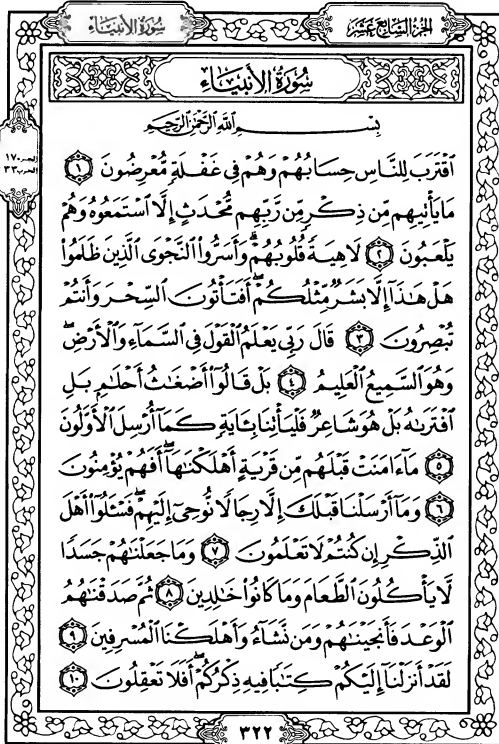 سُورَةُ الأَنْبِيَاءِ
الجُزْءُ السَّابِعَ عَشَرَ
سُورَةُ الأَنْبِيَاءِ
الجزء ١٧
الحزب ٣٣
بِسْمِ ٱللَّهِ ٱلرَّحْمَٰنِ ٱلرَّحِيمِ
ٱقْتَرَبَ لِلنَّاسِ حِسَابُهُمْ وَهُمْ فِي غَفْلَةٍ مُّعْرِضُونَ ١
مَا يَأْتِيهِم مِّن ذِكْرٍ مِّن رَّبِّهِم مُّحْدَثٍ إِلَّا ٱسْتَمَعُوهُ وَهُمْ
يَلْعَبُونَ ٢ لَاهِيَةً قُلُوبُهُمْ ۗ وَأَسَرُّوا۟ ٱلنَّجْوَى ٱلَّذِينَ ظَلَمُوا۟
هَلْ هَٰذَآ إِلَّا بَشَرٌ مِّثْلُكُمْ ۖ أَفَتَأْتُونَ ٱلسِّحْرَ وَأَنتُمْ
تُبْصِرُونَ ٣ قَالَ رَبِّي يَعْلَمُ ٱلْقَوْلَ فِي ٱلسَّمَآءِ وَٱلْأَرْضِ ۖ
وَهُوَ ٱلسَّمِيعُ ٱلْعَلِيمُ ٤ بَلْ قَالُوٓا۟ أَضْغَٰثُ أَحْلَٰمٍ بَلِ
ٱفْتَرَىٰهُ بَلْ هُوَ شَاعِرٌ فَلْيَأْتِنَا بِـَٔايَةٍ كَمَآ أُرْسِلَ ٱلْأَوَّلُونَ
٥ مَآ ءَامَنَتْ قَبْلَهُم مِّن قَرْيَةٍ أَهْلَكْنَٰهَآ ۖ أَفَهُمْ يُؤْمِنُونَ
٦ وَمَآ أَرْسَلْنَا قَبْلَكَ إِلَّا رِجَالًا نُّوحِيٓ إِلَيْهِمْ ۖ فَسْـَٔلُوٓا۟ أَهْلَ
ٱلذِّكْرِ إِن كُنتُمْ لَا تَعْلَمُونَ ٧ وَمَا جَعَلْنَٰهُمْ جَسَدًا
لَّا يَأْكُلُونَ ٱلطَّعَامَ وَمَا كَانُوا۟ خَٰلِدِينَ ٨ ثُمَّ صَدَقْنَٰهُمُ
ٱلْوَعْدَ فَأَنجَيْنَٰهُمْ وَمَن نَّشَآءُ وَأَهْلَكْنَا ٱلْمُسْرِفِينَ ٩
لَقَدْ أَنزَلْنَآ إِلَيْكُمْ كِتَٰبًا فِيهِ ذِكْرُكُمْ ۖ أَفَلَا تَعْقِلُونَ ١٠
٣٢٢